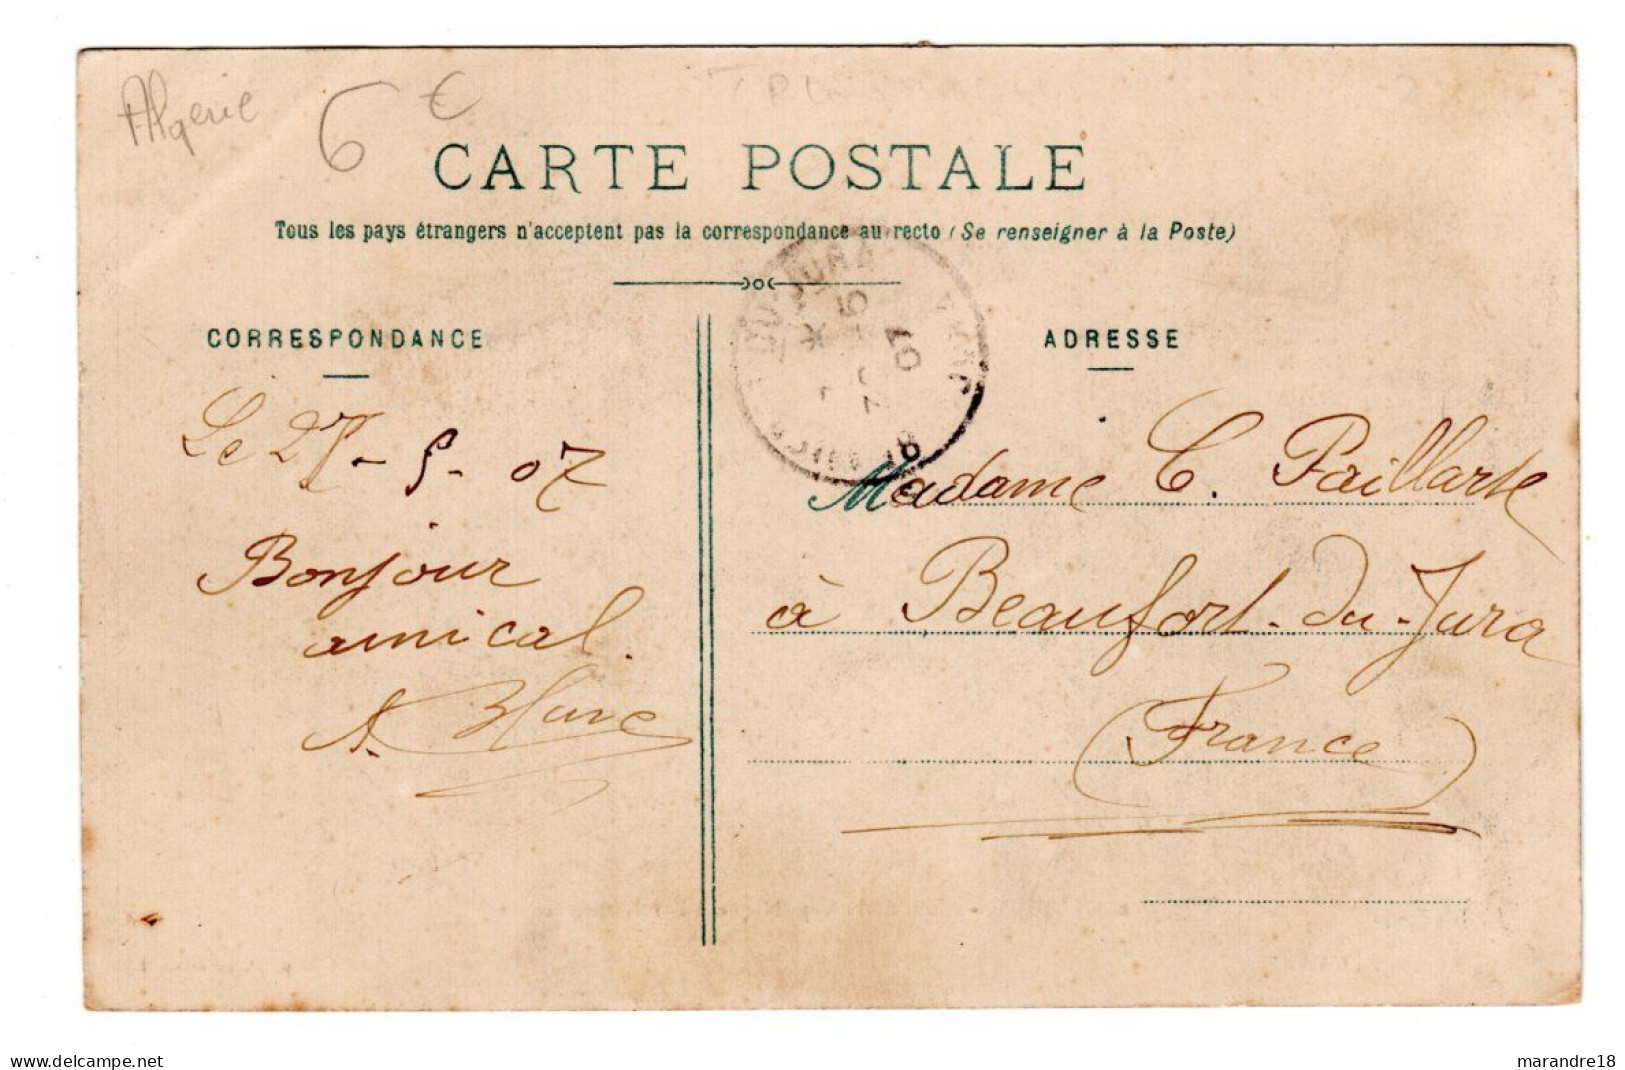 Algerie 6 €
CARTE POSTALE
Tous les pays étrangers n'acceptent pas la correspondance au recto (Se renseigner à la Poste)
CORRESPONDANCE
Le 27-5-07
Bonjour
amical.
A. Blanc
ADRESSE
Madame C. Paillard
à Beaufort-du-Jura
(France)
JURA
07
delcampe.net
marandre18